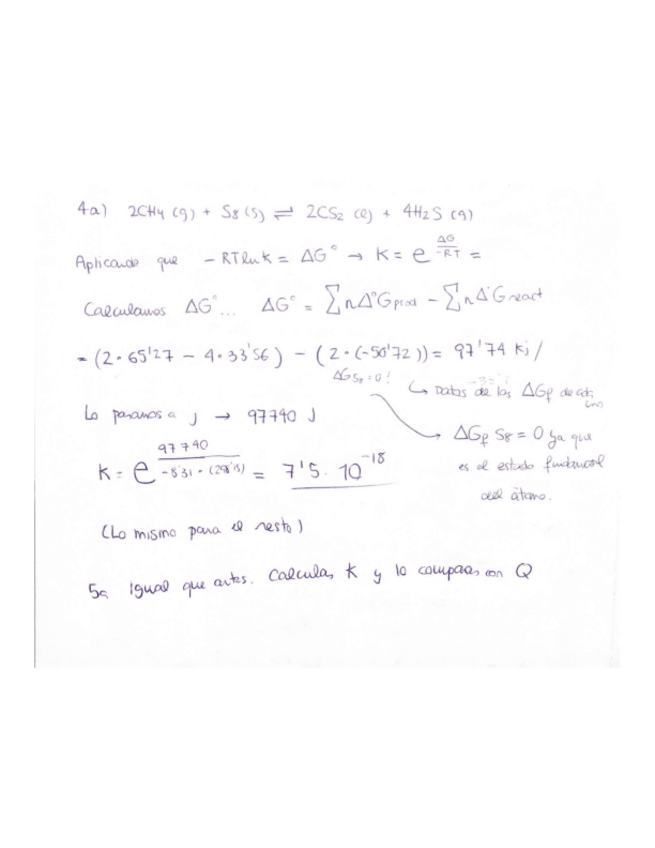 4a) 2CH4 (g) + S8 (s) ⇌ 2CS2 (l) + 4H2S (g)
Aplicando que - RT ln K = ΔG° → K = e^(ΔG/-RT) =
Calculamos ΔG°... ΔG° = ∑nΔ°G prod - ∑nΔ°G react
= (2·65'27 - 4·33'56) - (2·(-50'72)) = 97'74 Kj/
ΔG S8 = 0!
↳ Datos de las ΔGf de cada uno
Lo pasamos a j → 97740 J
→ ΔGf S8 = 0 ya que
es el estado fundamental
del átomo.
K = e^(97740/-8'31·(298'15)) = 7'5·10^-18
(Lo mismo para el resto)
5a Igual que antes. Calculas K y lo comparas con Q